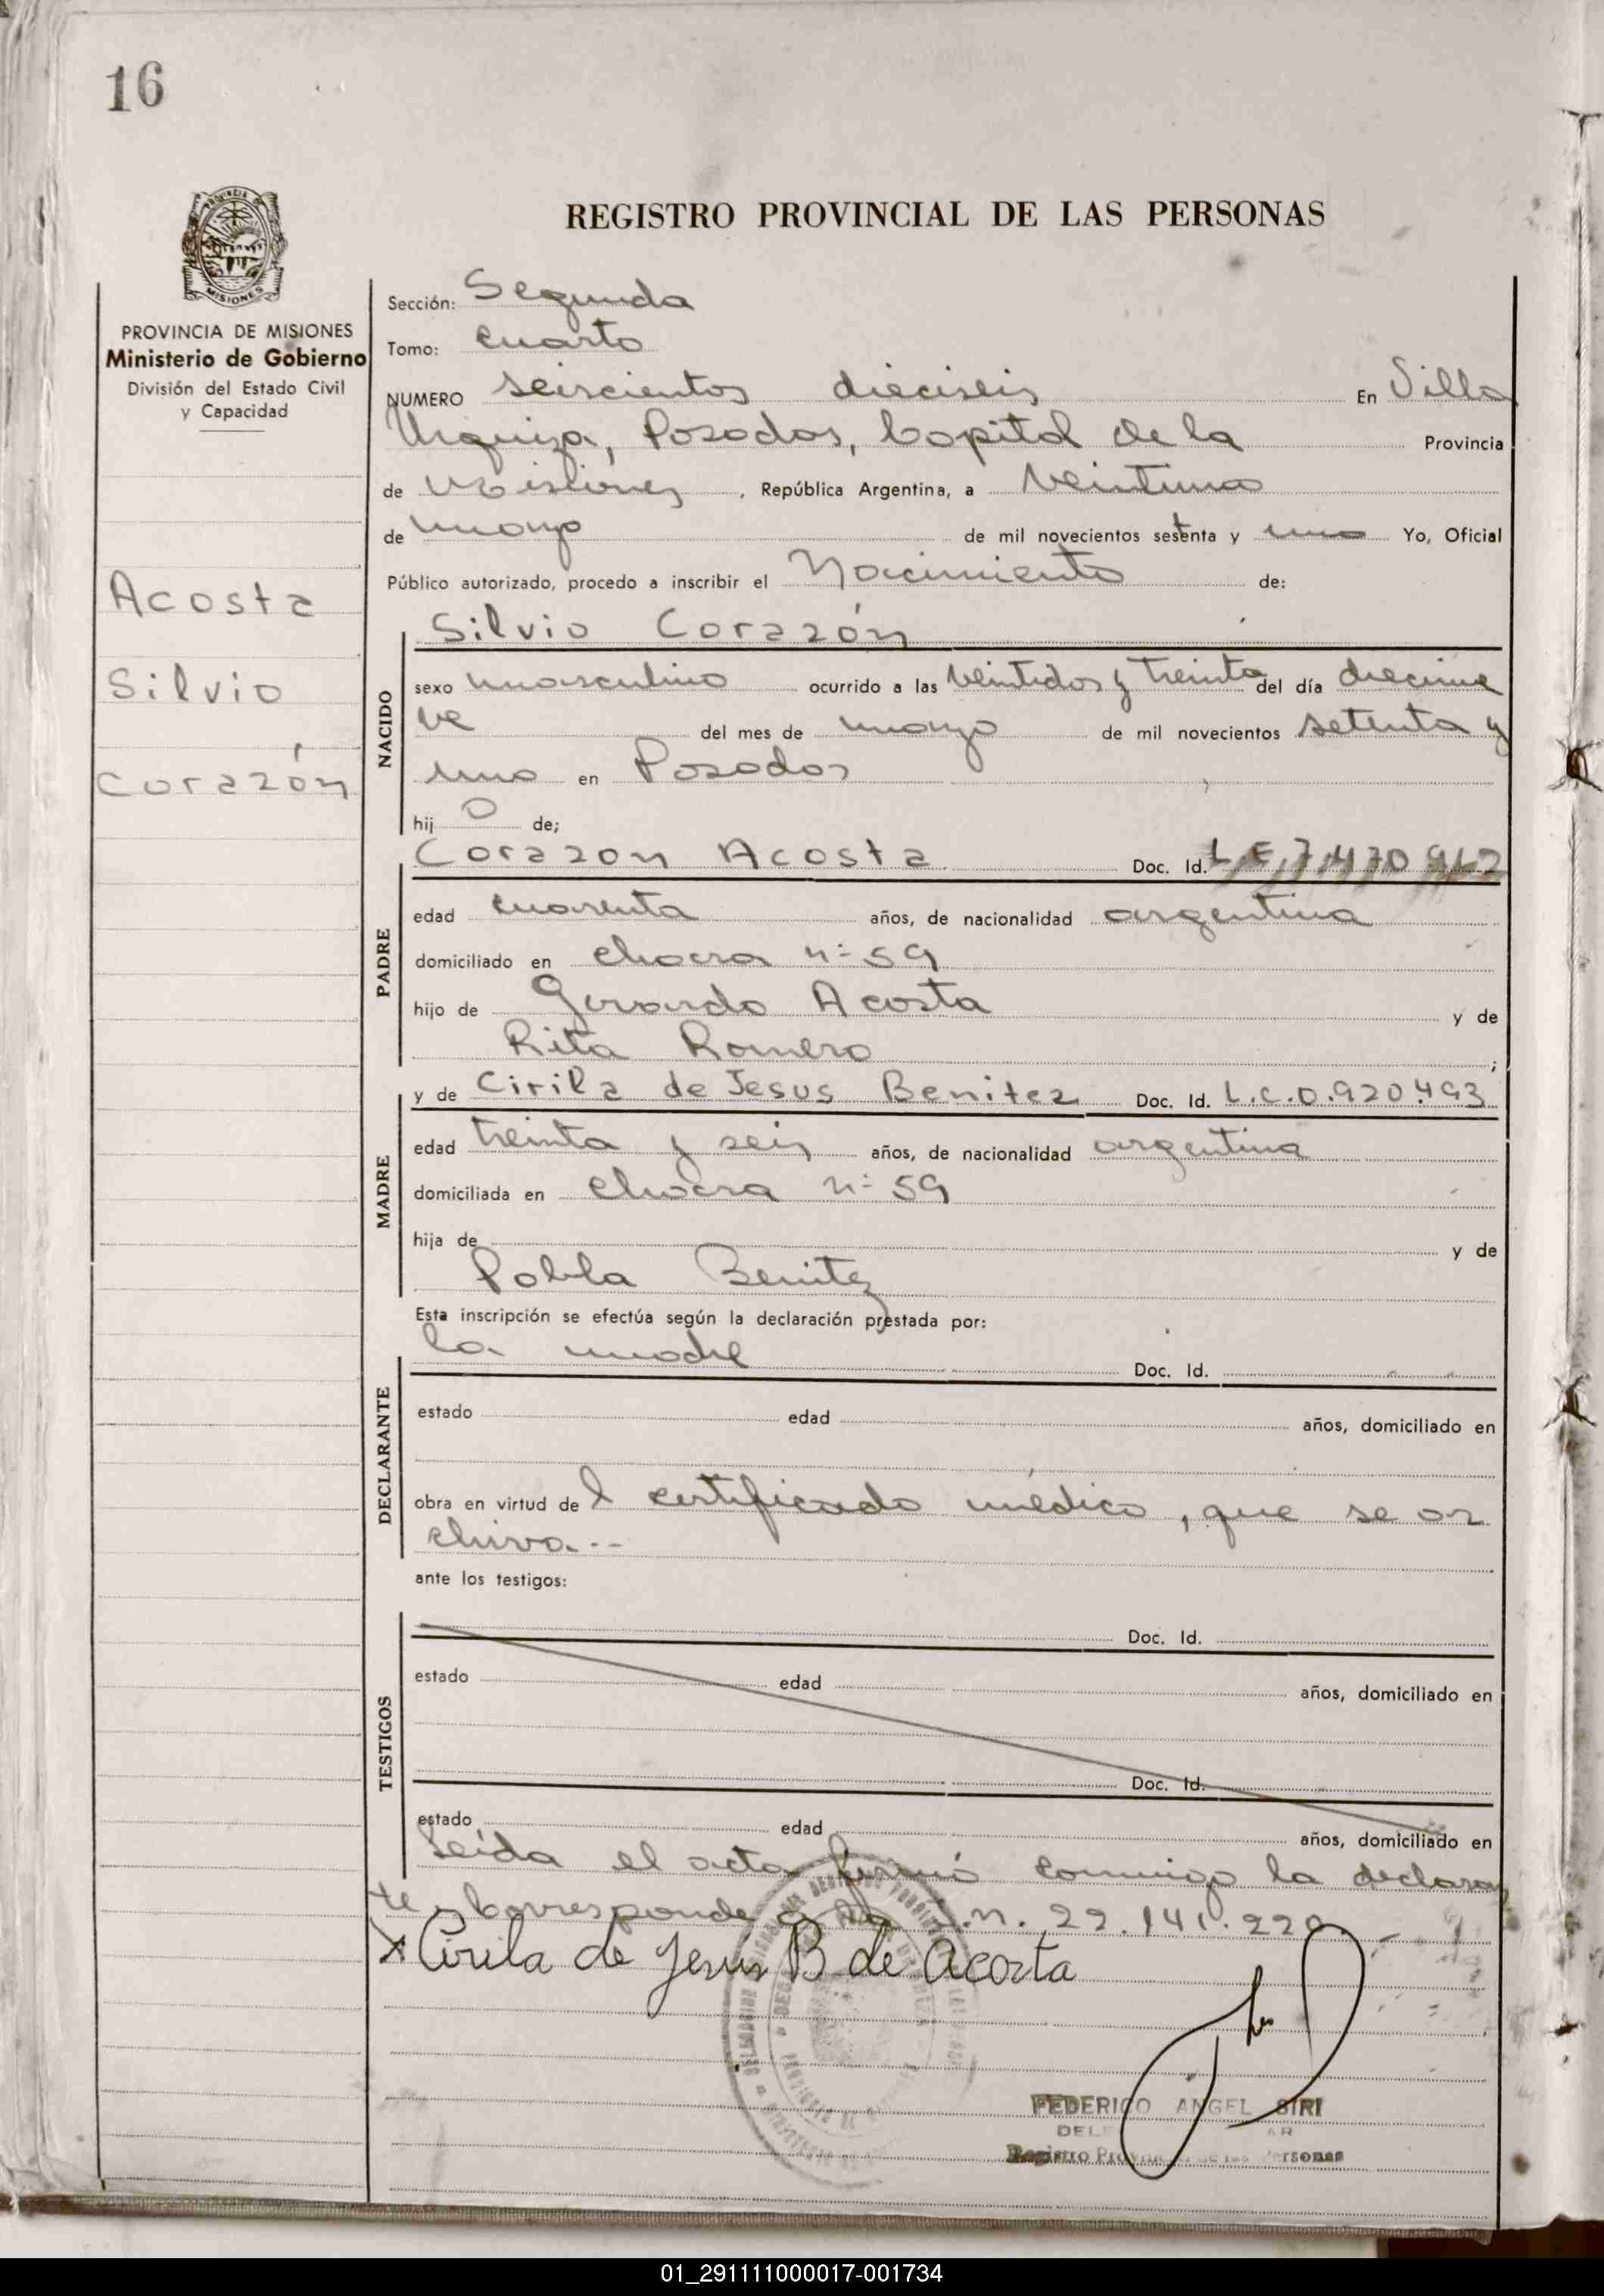 16
REGISTRO PROVINCIAL DE LAS PERSONAS
PROVINCIA DE MISIONES
Ministerio de Gobierno
División del Estado Civil
y Capacidad
Acosta
Silvio
Corazón
Sección: Segunda
Tomo: Cuarto
NUMERO seiscientos dieciseis En Villa
Urquiza, Posadas, Capital de la Provincia
de Misiones, República Argentina, a veintiuno
de marzo de mil novecientos setenta y uno Yo, Oficial
Público autorizado, procedo a inscribir el Nacimiento de:
NACIDO
Silvio Corazón
sexo masculino ocurrido a las veintidos y treinta del día diecinue
ve del mes de marzo de mil novecientos setenta y
uno en Posadas
hijo de;
PADRE
Corazon Acosta Doc. Id. L.E.7.470.
edad cuarenta años, de nacionalidad argentina
domiciliado en chacra nº 59
hijo de Gerardo Acosta y de
Rita Romero ;
MADRE
y de Cirila de Jesus Benitez Doc. Id. L.C.0.920.493
edad treinta y seis años, de nacionalidad argentina
domiciliada en chacra nº 59
hija de y de
Pabla Benitez
Esta inscripción se efectúa según la declaración prestada por:
DECLARANTE
la madre Doc. Id.
estado edad años, domiciliado en
obra en virtud del certificado médico, que se ar
chiva.--
ante los testigos:
TESTIGOS
Doc. Id.
estado edad años, domiciliado en
Doc. Id.
estado edad años, domiciliado en
Leida el acta firmó conmigo la declaran
te. Corresponde 22.141.220
X Cirila de Jesús B de Acosta
FEDERICO ANGEL SIRI
Registro Provincial de las Personas
01_291111000017-001734